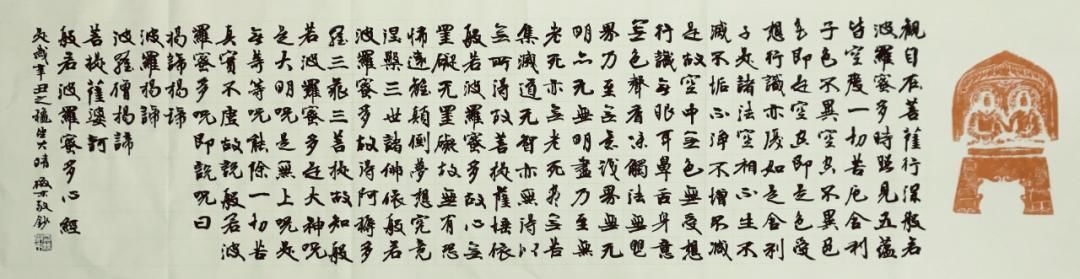 觀自在菩薩行深般若
波羅蜜多時照見五蘊
皆空度一切苦厄舍利
子色不異空空不異色
色即是空空即是色受
想行識亦復如是舍利
子是諸法空相不生不
滅不垢不淨不增不減
是故空中無色無受想
行識無眼耳鼻舌身意
無色聲香味觸法無眼
界乃至無意識界無无
明亦无無明盡乃至無
老死亦無老死盡無苦
集滅道无智亦無得以
無所得故菩提薩埵依
般若波羅蜜多故心無
罣礙无罣礙故無有恐
怖遠離顛倒夢想究竟
涅槃三世諸佛依般若
波羅蜜多故得阿耨多
羅三藐三菩提故知般
若波羅蜜多是大神呪
是大明呪是無上呪是
無等等呪能除一切苦
真實不虛故說般若波
羅蜜多呪即說呪曰
揭諦揭諦
波羅揭諦
波羅僧揭諦
菩提薩婆訶
般若波羅蜜多心經
是歲辛丑之 敬鈔